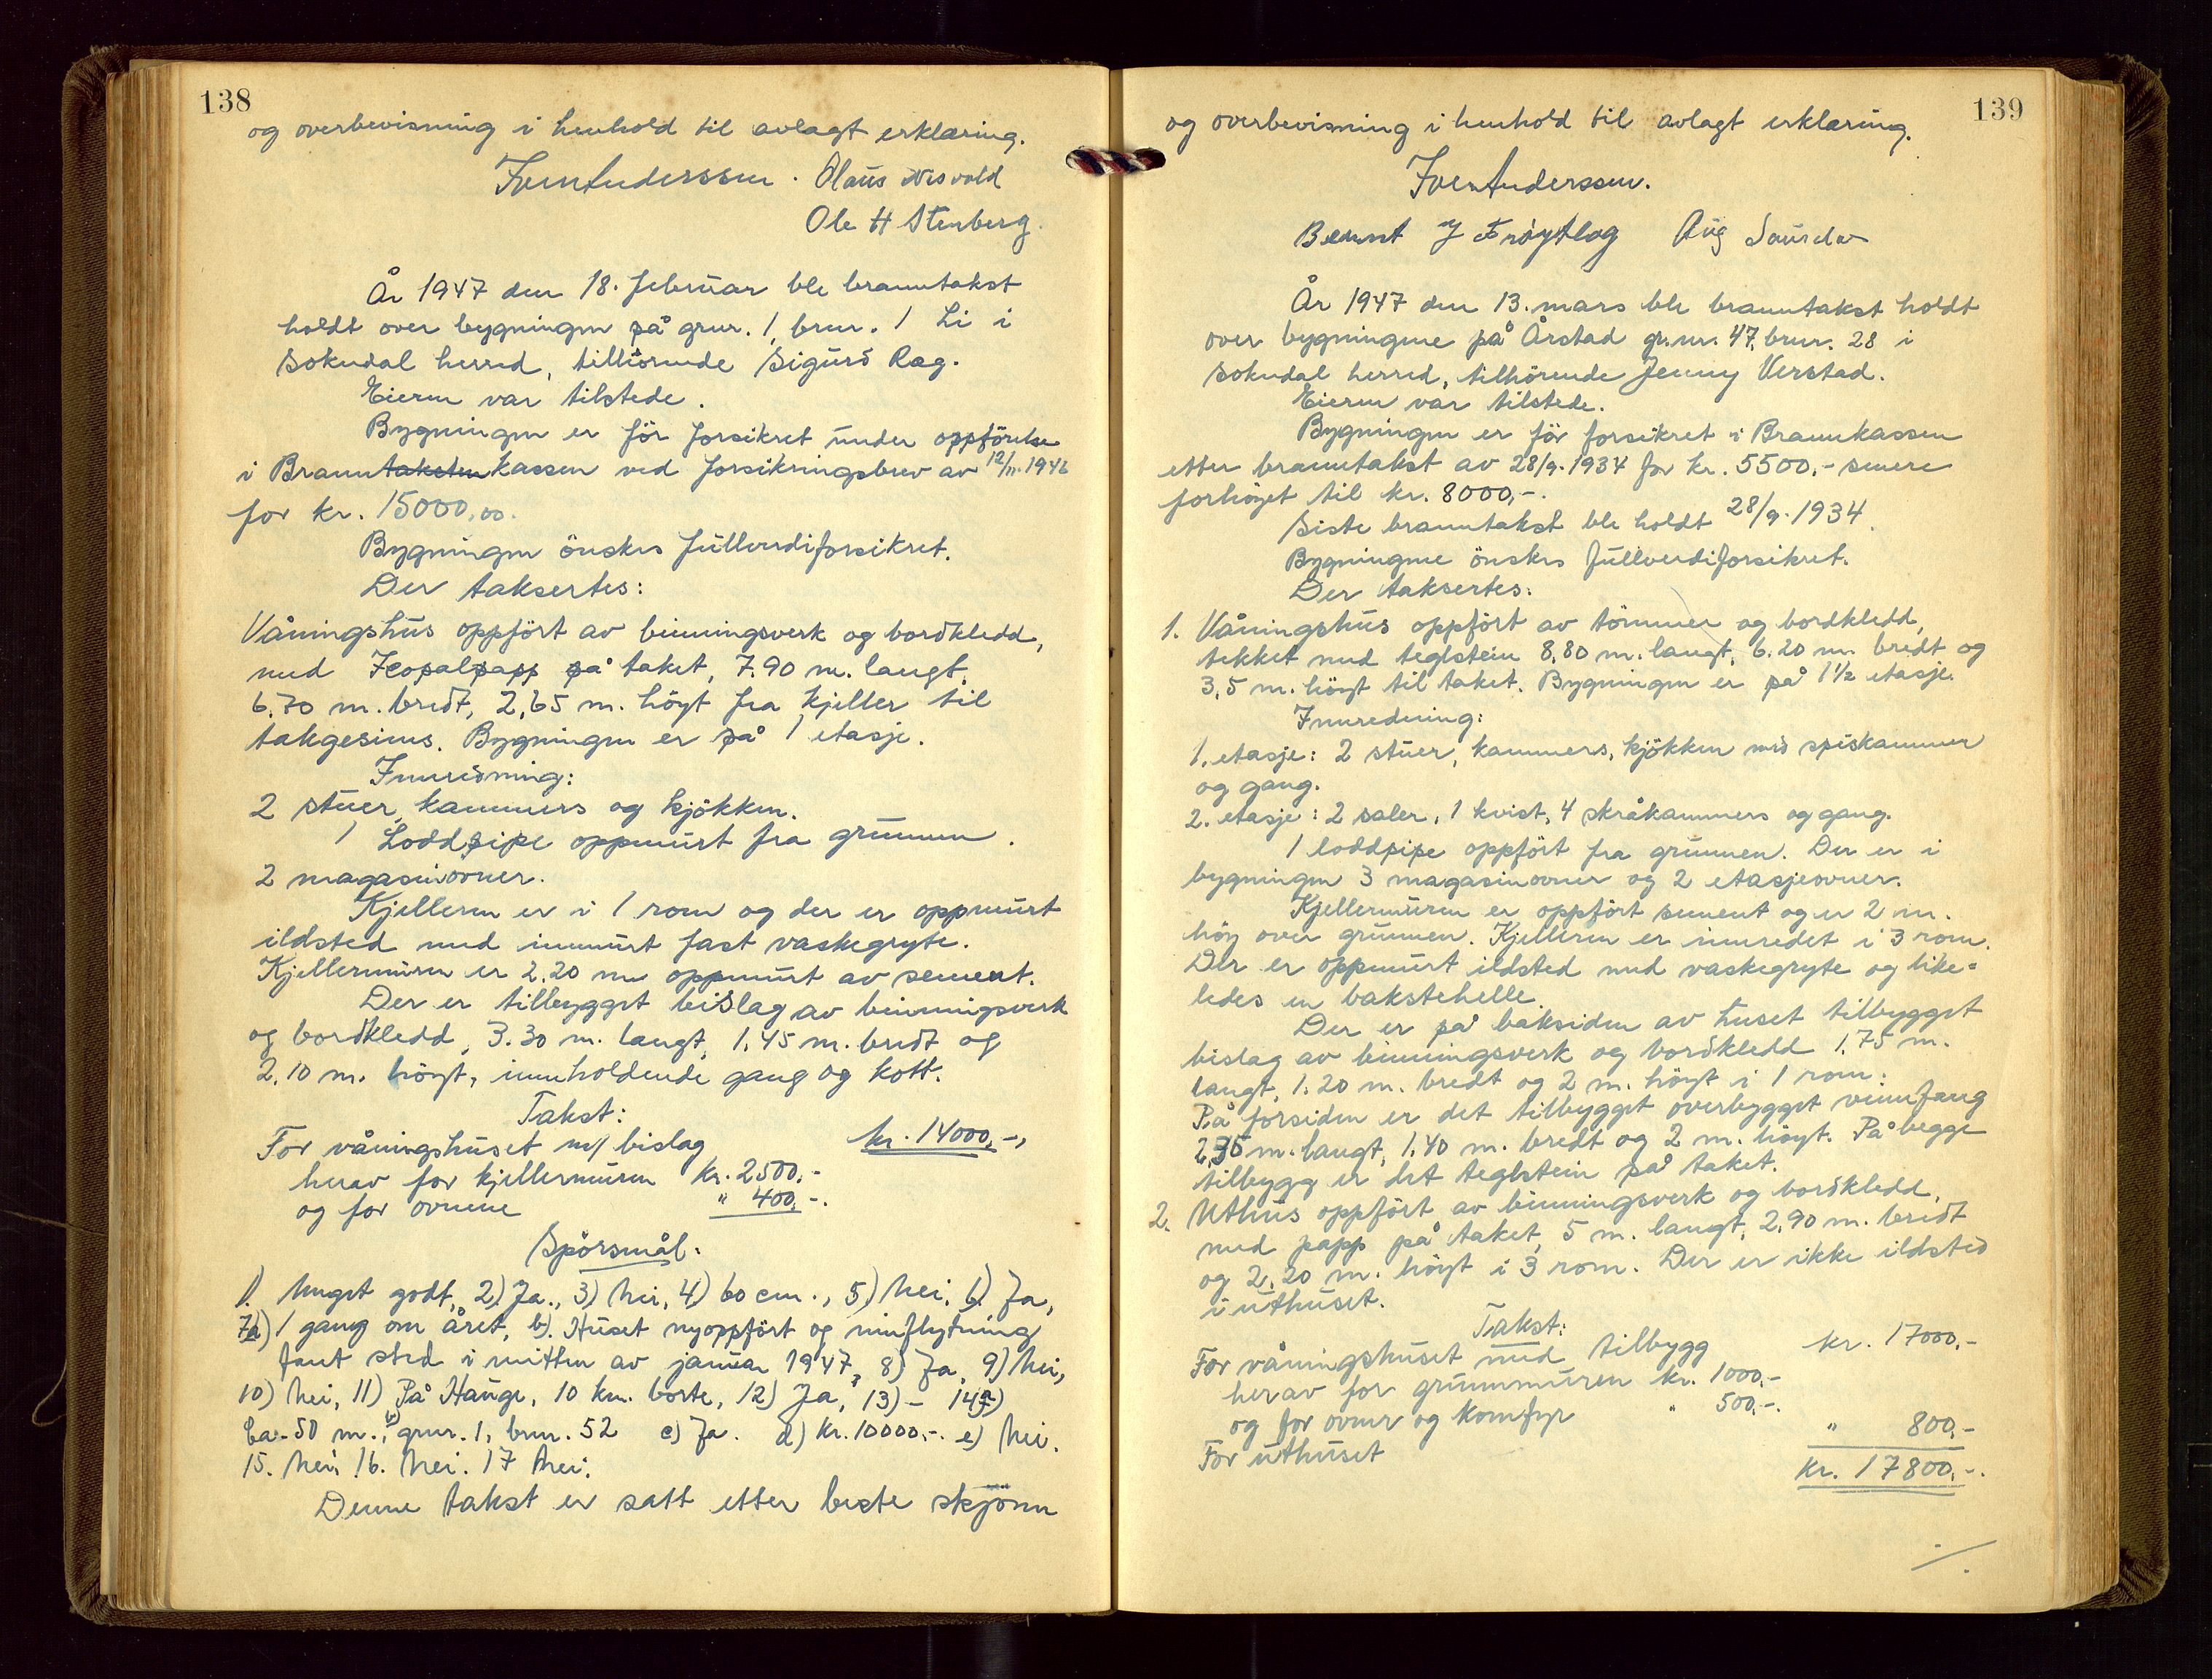 138
og overbevisning i henhold til avlagt erklæring.
Iver Anderssen. Olaus
Ole H Stenberg.
År 1947 den 18. februar ble branntakst
holdt over bygningen på grnr. 1, brnr. 1 Li i
Sokndal herred, tilhörende Sigurd Rag.
Eieren var tilstede.
Bygningen er för forsikret under oppförelse
i Branntakstenkassen ved forsikringsbrev av 12/11.1946
for kr. 15000,00.
Bygningen önskes fullverdiforsikret.
Der taksertes:
Våningshus oppfört av binningsverk og bordkledd,
med Icopalpapp på taket, 7.90 m. langt,
6.70 m. bredt, 2,65 m. höyt fra kjeller til
takgesims. Bygningen er på 1 etasje.
Innredning:
2 stuer, kammers og kjökken.
1 Loddpipe oppmurt fra grunnen.
2 magasinovner.
Kjelleren er i 1 rom og der er oppmurt
ildsted med innmurt fast vaskegryte.
Kjellermuren er 2.20 m oppmurt av sement.
Der er tilbygget bislag av binningsverk
og bordkledd, 3.30 m. langt, 1.45 m. bredt og
2.10 m. höyt, inneholdende gang og kott.
Takst:
For våningshuset m/ bislag kr. 14000,-,
herav for kjellermuren kr. 2500,-
og for ovnene " 400,-.
Spörsmål:
1). Meget godt, 2) Ja., 3) Nei, 4) 60 cm., 5) Nei, 6) Ja,
7a) 1 gang om året, b). Huset nyoppfört og innflytning
fant sted i mitten av januar 1947, 8) Ja, 9) Nei,
10) Nei, 11) På Hauge, 10 km. borte, 12) Ja, 13) - 14a)
Ca. 50 m., b) grnr. 1, brnr. 52 c) Ja. d) kr. 10000,-. e) Nei.
15. Nei 16. Nei. 17 Nei.
Denne takst er satt etter beste skjönn
139
og overbevisning i henhold til avlagt erklæring.
Iver Anderssen.
Berent J Frøytlog Aug
År 1947 den 13. mars ble branntakst holdt
over bygningene på Årstad gr.nr. 47, brnr. 28 i
Sokndal herred, tilhörende Jenny Verstad.
Eieren var tilstede.
Bygningen er för forsikret i Brannkassen
etter branntakst av 28/9.1934 for kr. 5500,- senere
forhöyet til kr. 8000,-.
Siste branntakst ble holdt 28/9.1934.
Bygningene önskes fullverdiforsikret.
Der taksertes:
1. Våningshus oppfört av tömmer og bordkledd,
tekket med teglstein 8,80 m. langt, 6.20 m. bredt og
3,5 m. höyt til taket. Bygningen er på 1 1/2 etasje.
Innredning:
1. etasje: 2 stuer, kammers, kjökken med spiskammer
og gang.
2. etasje: 2 saler, 1 kvist, 4 skråkammers og gang.
1 loddpipe oppfört fra grunnen. Der er i
bygningen 3 magasinovner og 2 etasjeovner.
Kjellermuren er oppfört sement og er 2 m.
höy over grunnen. Kjelleren er innredet i 3 rom.
Der er oppmurt ildsted med vaskegryte og like=
ledes en bakstehelle.
Der er på baksiden av huset tilbygget
bislag av binningsverk og bordkledd 1.75 m.
langt, 1.20 m. bredt og 2 m. höyt i 1 rom.
På forsiden er det tilbygget overbygget vinnfang
2,35 m. langt, 1.40 m. bredt og 2 m. höyt. På begge
tilbygg er det teglstein på taket.
2. Uthus oppfört av binningsverk og bordkledd,
med papp på taket, 5 m. langt, 2,90 m. bredt
og 2.20 m. höyt i 3 rom. Der er ikke ildsted
i uthuset.
Takst:
For våningshuset med tilbygg kr. 17000,-
herav for grunnmuren kr. 1000,-
og for ovner og komfyr " 500,-.
For uthuset " 800,-
kr. 17800,-.
./.